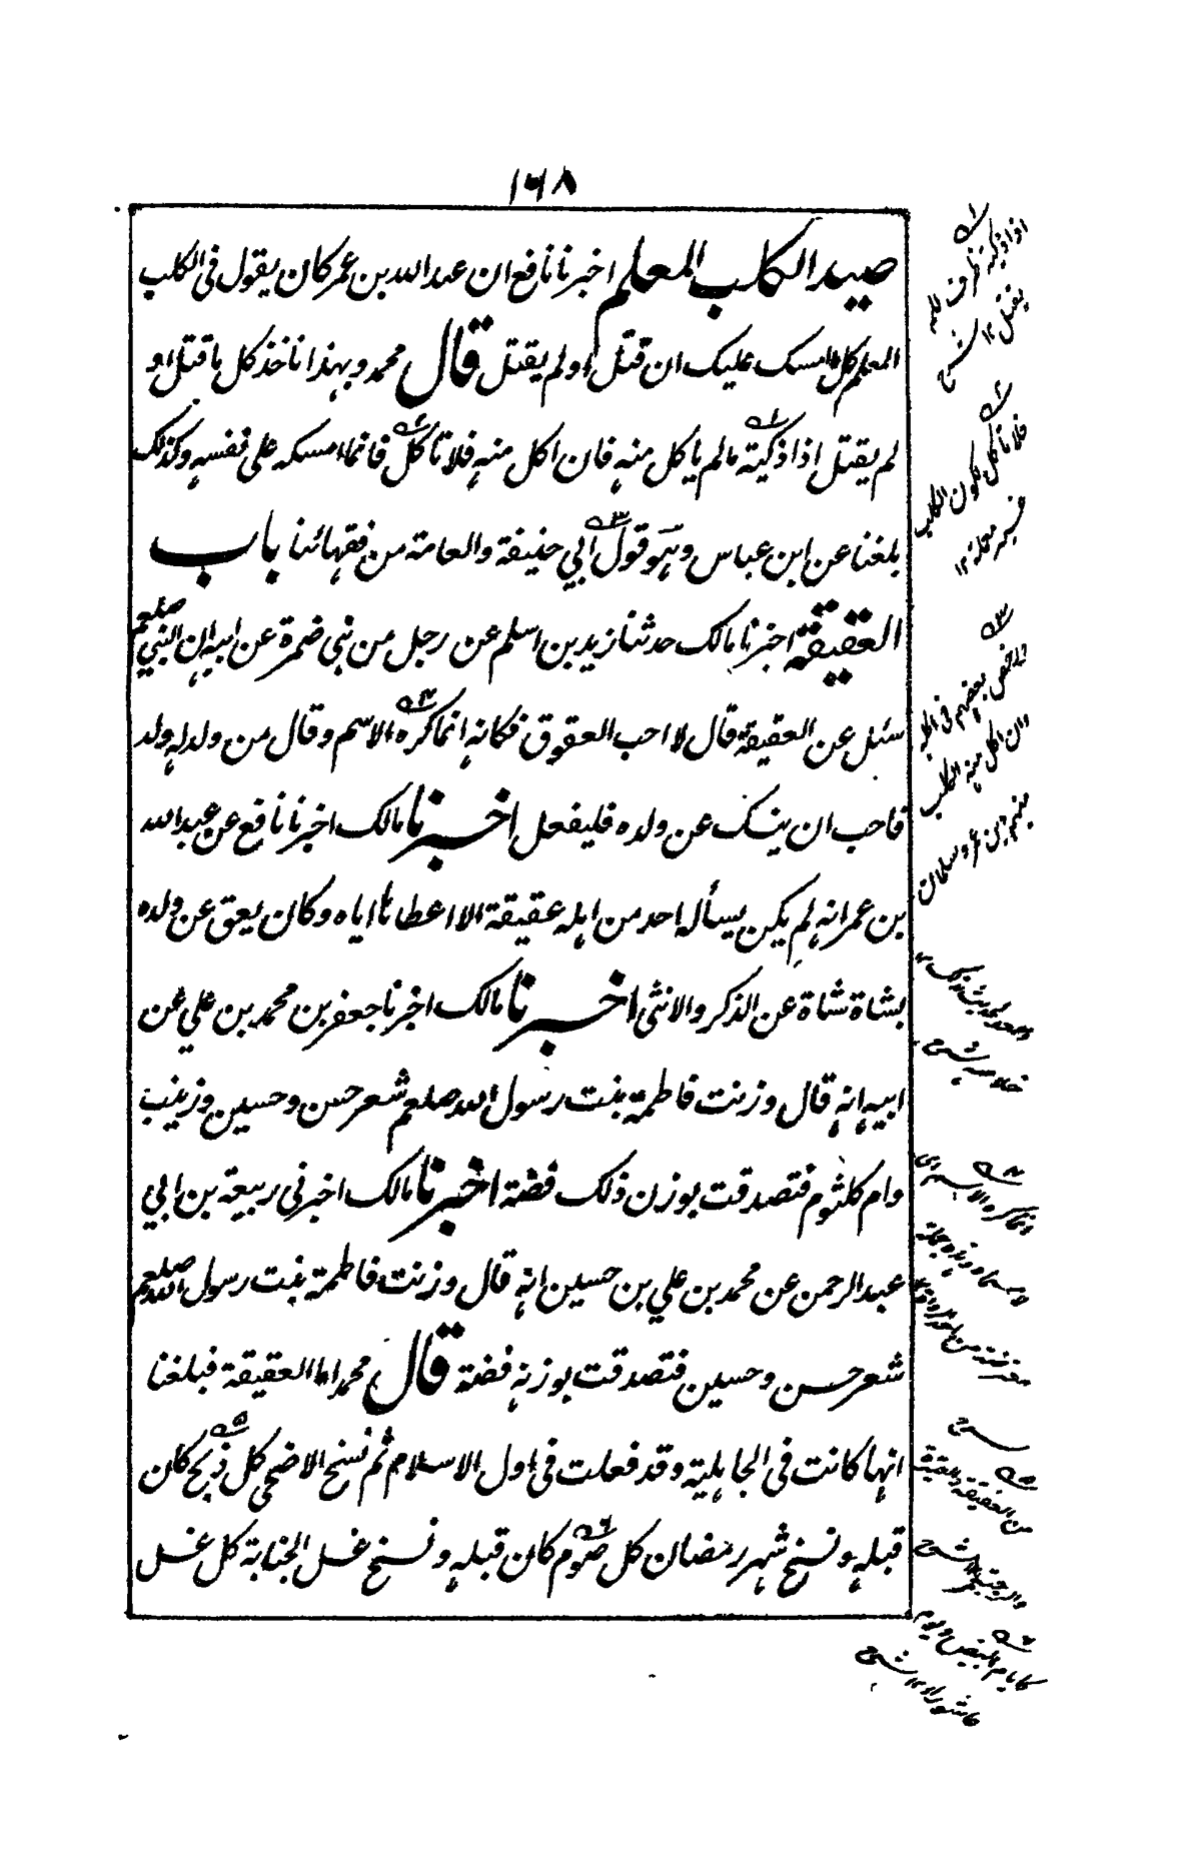 ١٦٨
صيد الكلب المعلم اخبرنا نافع ان عبد الله بن عمر كان يقول في الكلب
المعلم كل ما امسك عليك ان قتل او لم يقتل قال محمد وبهذا ناخذ كل ما قتل او
لم يقتل اذا ذكيته ما لم ياكل منه فان اكل منه فلا تاكل فانما امسكه على نفسه وكذلك
بلغنا عن ابن عباس وهو قول ابي حنيفة والعامة من فقهائنا باب
العقيقة اخبرنا مالك حدثنا زيد بن اسلم عن رجل من بني ضمرة عن ابيه ان النبي صلعم
سئل عن العقيقة قال لا احب العقوق فكانه انما كره الاسم وقال من ولد له ولد
فاحب ان ينسك عن ولده فليفعل اخبرنا مالك اخبرنا نافع عن عبد الله
بن عمر انه لم يكن يسأله احد من اهله عقيقة الا اعطاها اياه وكان يعق عن ولده
بشاة شاة عن الذكر والانثى اخبرنا مالك اخبرنا جعفر بن محمد بن علي عن
ابيه انه قال وزنت فاطمة بنت رسول الله صلعم شعر حسن وحسين وزينب
وام كلثوم فتصدقت بوزن ذلك فضة اخبرنا مالك اخبرني ربيعة بن ابي
عبد الرحمن عن محمد بن علي بن حسين انه قال وزنت فاطمة بنت رسول الله صلعم
شعر حسن وحسين فتصدقت بوزنه فضة قال محمد اما العقيقة فبلغنا
انها كانت في الجاهلية وقد فعلت في اول الاسلام ثم نسخ الاضحى كل ذبح كان
قبله ونسخ شهر رمضان كل صوم كان قبله ونسخ غسل الجنابة كل غسل
١
اذا ذكيته
يقتل ١٢
٢
فلا تاكل لكون الكلب
٣
ورخص بعضهم في
وان اكل منه الكلب
منهم ابن عمر وسلمان
٤
٥
٦
كايام البيض ويوم
عاشوراء ١٢